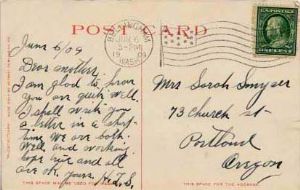 POST CARD
BELLINGHAM
JUN 6
5-PM
19 09
WASH.
June 6/09
Dear
I am glad to hear
you are quite well.
I shall write you
a letter in a short
time. We are both
well and working
hope you and all
are ok. Yours. H.T.S.
Mrs Sarah Smyser
73 church st
Portland
Oregon
THIS SPACE MAY BE USED FOR
THIS SPACE IS FOR THE ADDRESS.